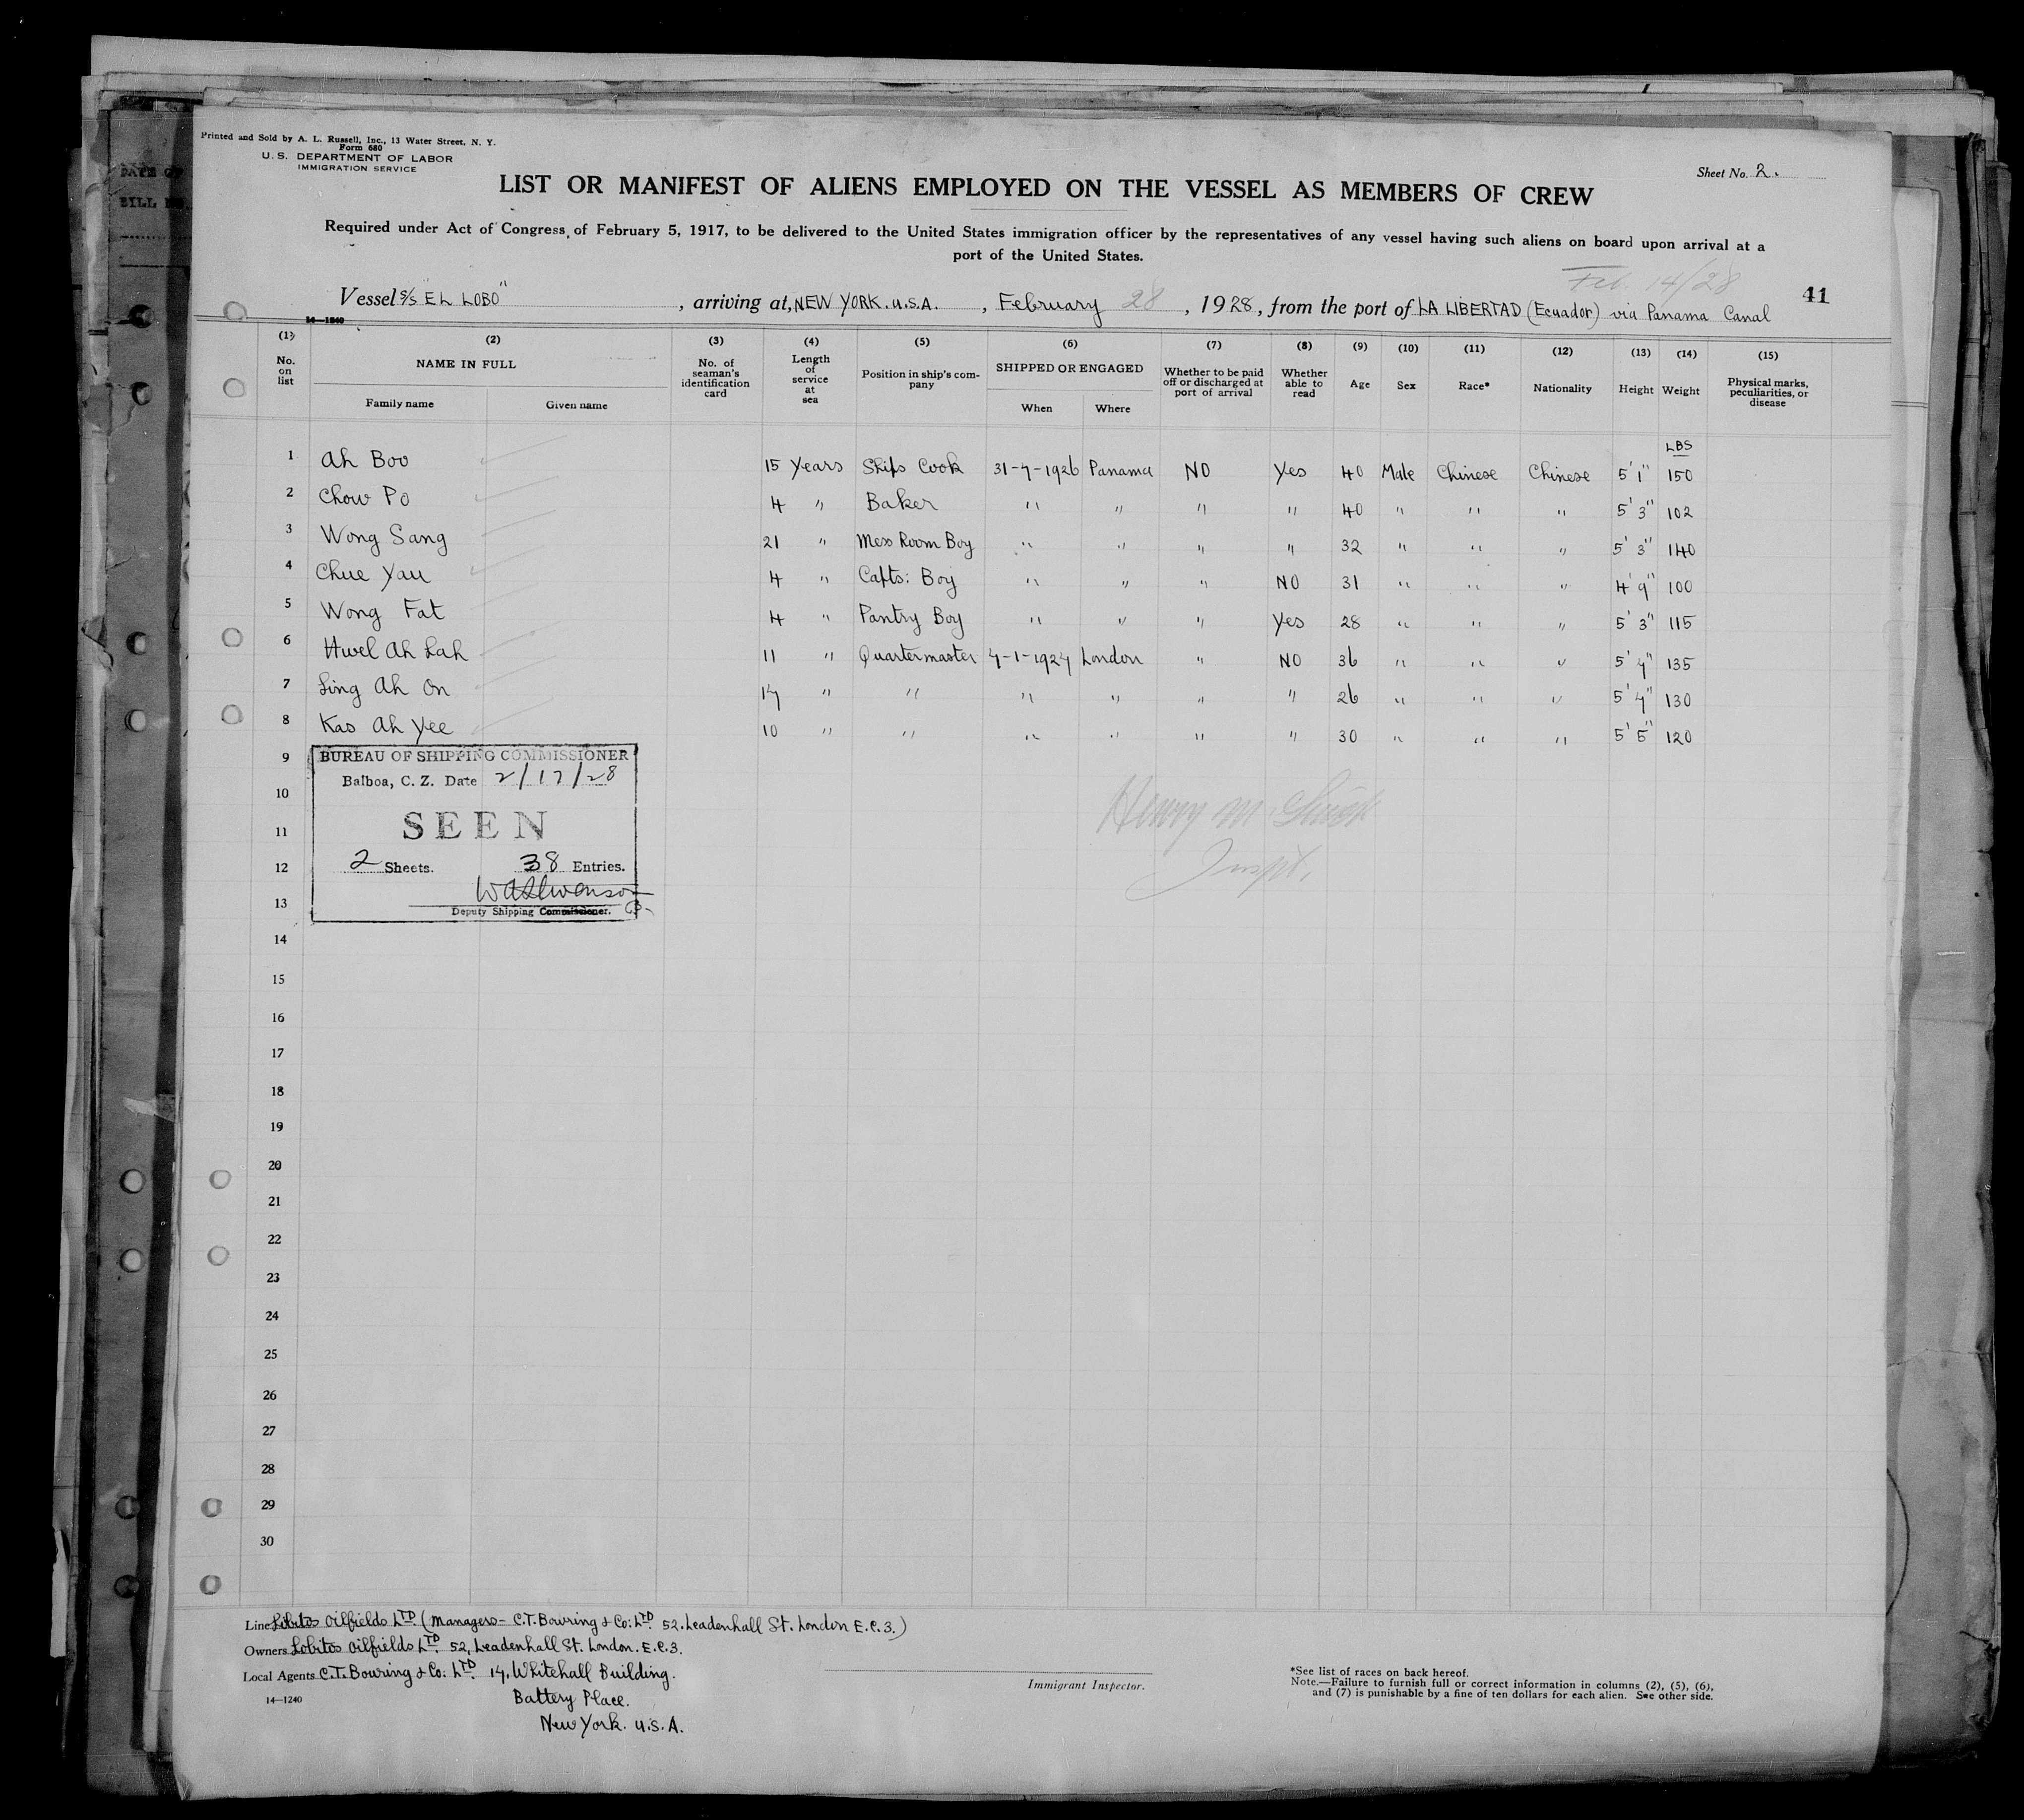 Printed and Sold by A. L. Russell, Inc., 13 Water Street, N. Y.
Form 680
U. S. DEPARTMENT OF LABOR
IMMIGRATION SERVICE
Sheet No. 2.
LIST OR MANIFEST OF ALIENS EMPLOYED ON THE VESSEL AS MEMBERS OF CREW
Required under Act of Congress of February 5, 1917, to be delivered to the United States immigration officer by the representatives of any vessel having such aliens on board upon arrival at a
port of the United States.
Feb. 14/28
41
Vessel S/S "EL LOBO", arriving at, NEW YORK. U.S.A., February 28, 1928, from the port of LA LIBERTAD (Ecuador) via Panama Canal
14—1240
(1) (2) (3) (4) (5) (6) (7) (8) (9) (10) (11) (12) (13) (14) (15)
No. on list NAME IN FULL No. of seaman's identification card Length of service at sea Position in ship's company SHIPPED OR ENGAGED Whether to be paid off or discharged at port of arrival Whether able to read Age Sex Race* Nationality Height Weight Physical marks, peculiarities, or disease
Family name Given name When Where
LBS
1 Ah Boo 15 Years Ships Cook 31-7-1926 Panama NO Yes 40 Male Chinese Chinese 5' 1" 150
2 Chow Po 4 " Baker " " " " 40 " " " 5' 3" 102
3 Wong Sang 21 " Mess Room Boy " " " " 32 " " " 5' 3" 140
4 Chue Yau 4 " Capts: Boy " " " NO 31 " " " 4' 9" 100
5 Wong Fat 4 " Pantry Boy " " " Yes 28 " " " 5' 3" 115
6 Hwel Ah Lah 11 " Quartermaster 7-1-1927 London " NO 36 " " " 5' 7" 135
7 Ling Ah On 17 " " " " " " 26 " " " 5' 7" 130
8 Kas Ah Yee 10 " " " " " " 30 " " " 5' 5" 120
9
10
11
12
13
BUREAU OF SHIPPING COMMISSIONER
Balboa, C. Z. Date 2/17/28
SEEN
2 Sheets. 38 Entries.
Deputy Shipping Commissioner.
Henry M
Inspt.
14
15
16
17
18
19
20
21
22
23
24
25
26
27
28
29
30
Line Lobitos Oilfields LTD. (Managers - C.T. Bowring & Co: LTD. 52. Leadenhall St. London E.C.3.)
Owners Lobitos Oilfields LTD. 52, Leadenhall St. London. E.C.3.
Local Agents C.T. Bowring & Co: LTD. 17, Whitehall Building.
Battery Place.
New York. U.S.A.
14—1240
Immigrant Inspector.
*See list of races on back hereof.
Note.—Failure to furnish full or correct information in columns (2), (5), (6),
and (7) is punishable by a fine of ten dollars for each alien. See other side.